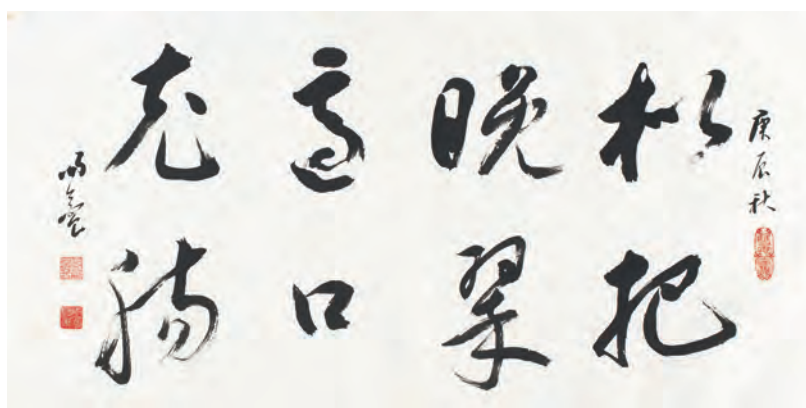 庚辰秋
枇杷
晚翠
適口
充腸